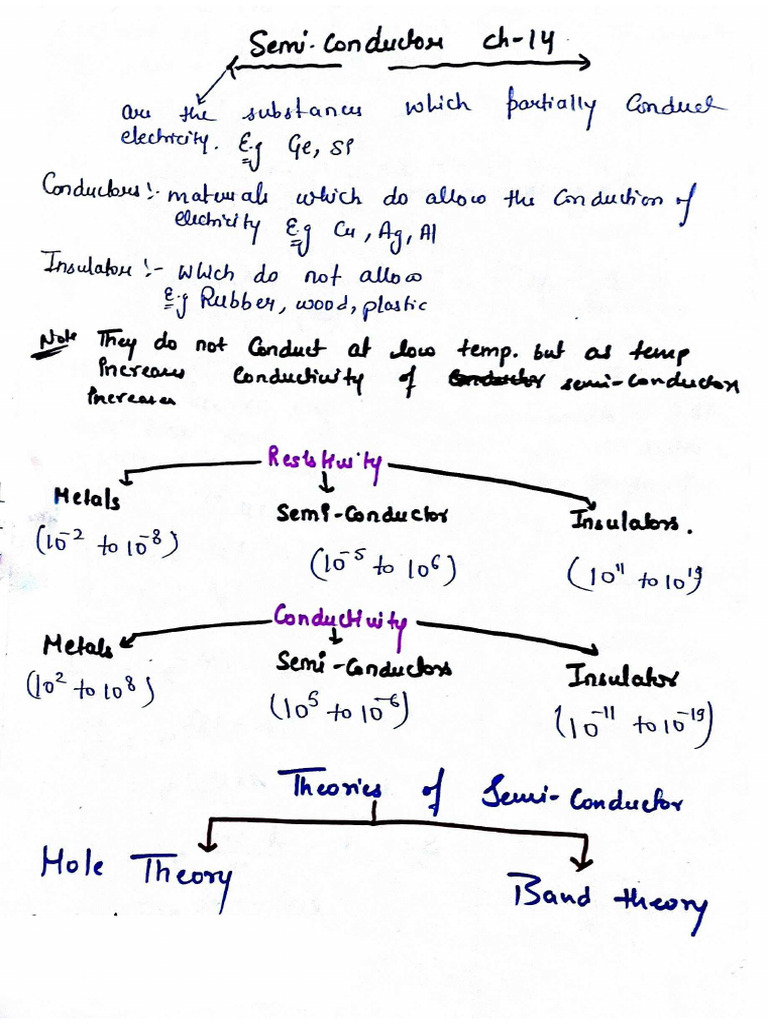 Semi-Conductor Ch-14
are the substances which partially Conduct
electricity. E.g Ge, Si
Conductors :- materials which do allow the Conduction of
electricity E.g Cu, Ag, Al
Insulator :- which do not allow
E.g Rubber, wood, plastic
Note They do not Conduct at low temp. but as temp
increases Conductivity of Conductor semi-conductors
increases
Resistivity
Metals Semi-Conductor Insulators.
(10⁻² to 10⁻⁸) (10⁻⁵ to 10⁶) (10¹¹ to 10¹⁹)
Conductivity
Metals Semi-Conductors Insulator
(10² to 10⁸) (10⁵ to 10⁻⁶) (10⁻¹¹ to 10⁻¹⁹)
Theories of Semi-Conductor
Hole Theory Band theory